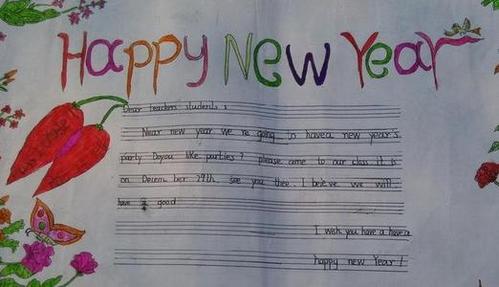 Happy New Year
Dear teachers students :
Near new year we re going to havea new year's
party Doyou like parties ? please come to our class it is
on Decem ber 29th. see you thee. I beieve we will
have a good
I wish you have a havea
happy new Year !